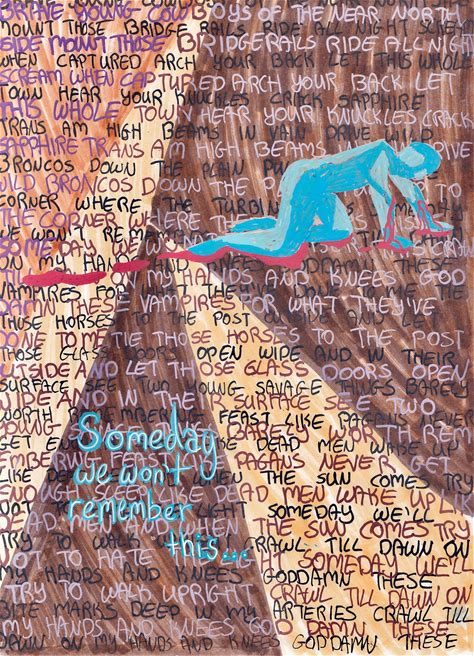 BRAVE YOUNG COWBOYS OF THE NEAR NORTH
MOUNT THOSE BRIDGE RAILS RIDE ALL NIGHT SCREAM
SIDE MOUNT THOSE BRIDGERAILS RIDE ALL NIGHT
WHEN CAPTURED ARCH YOUR BACK LET THIS WHOLE
SCREAM WHEN CAPTURED ARCH YOUR BACK LET
TOWN HEAR YOUR KNUCKLES CRACK SAPPHIRE
THIS WHOLE TOWN HEAR YOUR KNUCKLES CRACK
TRANS AM HIGH BEAMS IN VAIN DRIVE WILD
SAPPHIRE TRANS AM HIGH BEAMS IN VAIN DRIVE
BRONCOS DOWN THE PLAIN
WILD BRONCOS DOWN THE
CORNER WHERE THE TURBIN
THE CORNER WHERE THE
WE WON'T REM
SOMEDAY WE WON
ON MY HAND
MY HANDS AND KNEES GOD
VAMPIRES FOR
DAMN THESE VAMPIRES FOR WHAT THEY'VE
THOSE HORSES TO THE POST
DONE TO ME TIE THOSE HORSES TO THE POST
THOSE GLASS DOORS OPEN WIPE AND IN THEIR
OUTSIDE AND LET THOSE GLASS DOORS OPEN
SURFACE SEE TWO YOUNG SAVAGE THINGS BARELY
WIDE AND IN THE SURFACE SEE TWO
WORTH REMEMBERING FEAST LIKE PAGANS NEVER
YOUNG
GET EN DEAD MEN WAKE UP
EMBERING FEAST PAGANS NEVER GET
LIKE DEAD THE SUN COMES TRY
ENOUGH SLEEP LIKE DEAD MEN WAKE UP
SOMEDAY WE'LL
WHEN THE SUN COMES TRY
TRY TO WALK CRAWL TILL DAWN ON
NOT TO HATE SOMEDAY WE'LL
MY HANDS AND KNEES GODDAMN THESE
TRY TO WALK UPRIGHT CRAWL TILL DAWN ON
BITE MARKS DEEP IN MY ARTERIES CRAWL TILL
MY HANDS AND KNEES GOD DAMN THESE
DAWN ON MY HANDS AND KNEES GODDAMN THESE
Someday
we won't
remember
this...